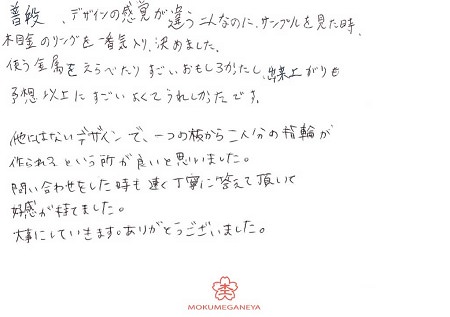 普段、デザインの感覚が違う二人なのに、サンプルを見た時、
木目金のリングを一番気入り、決めました。
使う金属をえらべたりすごいおもしろかったし、出来上がりも
予想以上にすごいよくてうれしかったです。
他にはないデザインで、一つの板から二人分の指輪が
作られるという所が良いと思いました。
問い合わせをした時も速く丁寧に答えて頂いて
好感が持てました。
大事にしていきます。ありがとうございました。
MOKUMEGANEYA